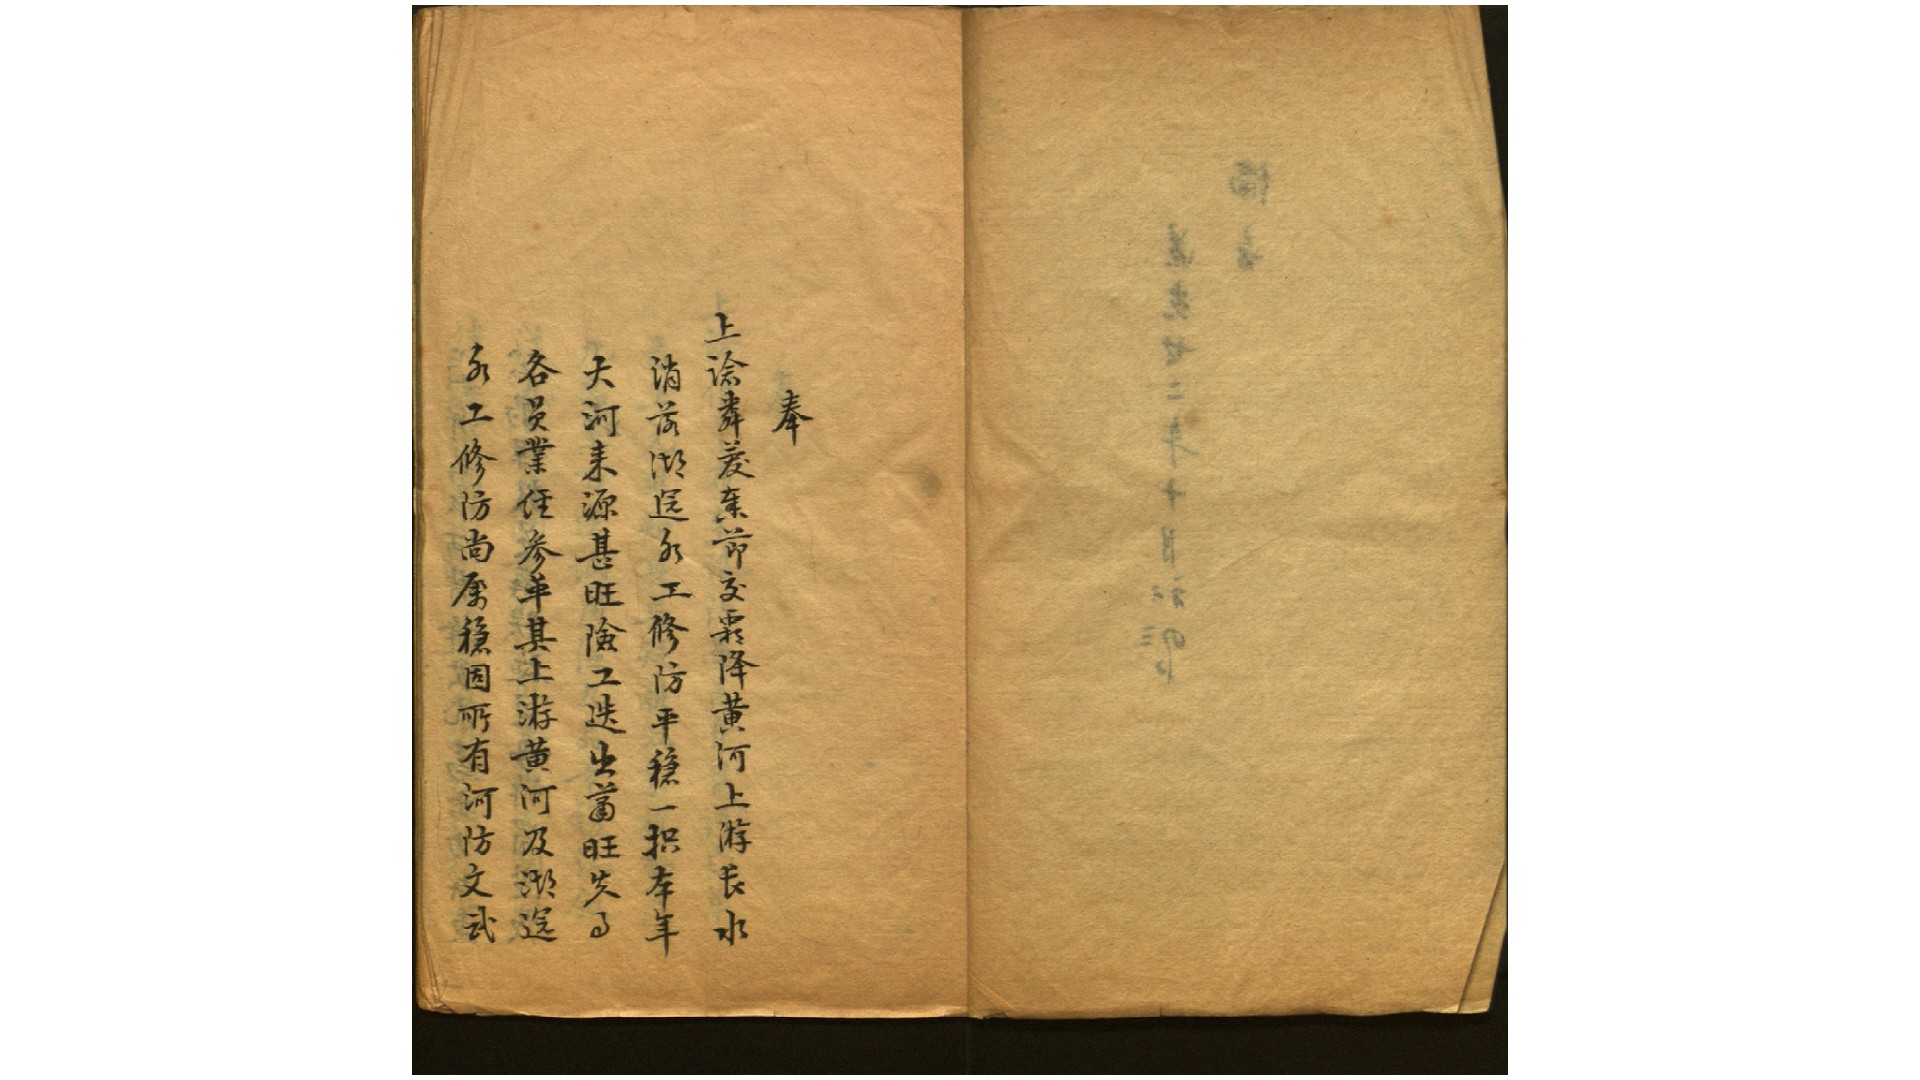 奉
上諭麟慶奏節交霜降黃河上游長水
消落湖運各工修防平穩一摺本年
大河來源甚旺險工迭出蕭旺失事
各員業經參革其上游黃河及湖運
各工修防尚屬穩固所有河防文武